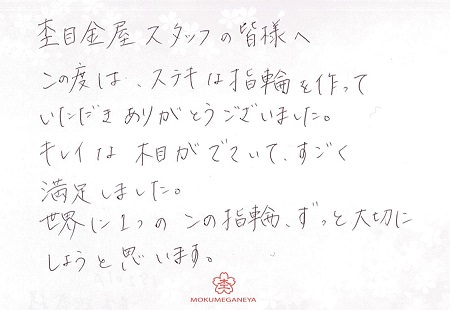 杢目金屋スタッフの皆様へ
この度は、ステキな指輪を作って
いただきありがとうございました。
キレイな木目がでていて、すごく
満足しました。
世界に1つのこの指輪、ずっと大切に
しようと思います。
杢
MOKUMEGANEYA